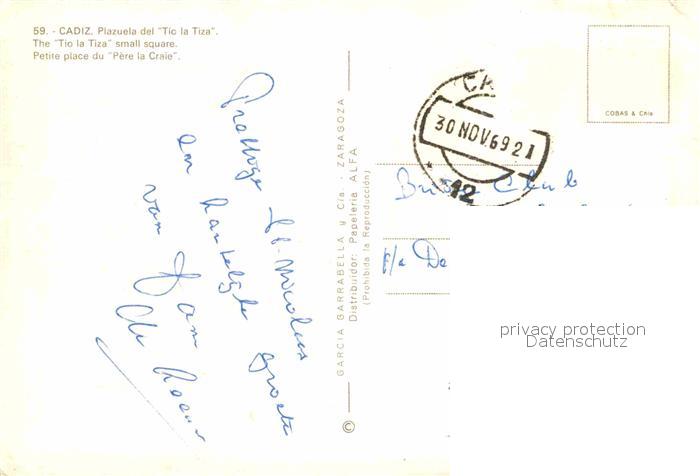 59. - CADIZ. Plazuela del "Tío la Tiza".
The "Tio la Tiza" small square.
Petite place du "Père la Craie".
Prettige St. Nicolaas
en hartelijke groeten
van Jan
de
GARCIA GARRABELLA y Cía. - ZARAGOZA
Distribuidor: Papelería ALFA
(Prohibida la Reproducción)
©
30 NOV. 69 21
12
COBAS & Cía
Club
P/a De
privacy protection
Datenschutz